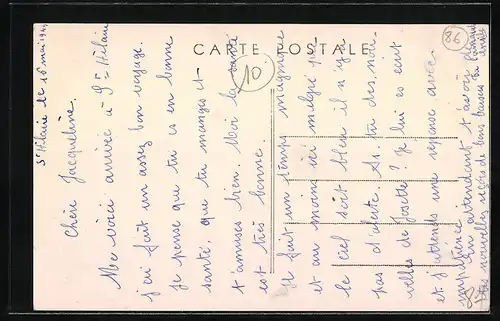 CARTE POSTALE
86
10
St Hilaire le 16 mai
Chère Jacqueline.
Me voici arrivée à St Hilaire
j'ai fait un assez bon voyage.
Je pense que tu es en bonne
santé. que tu manges et
t'amuses bien. Moi la santé
est très bonne.
Il fait un temps magnifique
et au moins ici malgré que
le ciel soit bleu il n'y a
pas d'alerte. As. tu des nou-
velles de Josette? Je lui ai écrit
et j'attends une réponse avec
impatience.
En attendant t'avoir
tes nouvelles reçois de bons baisers